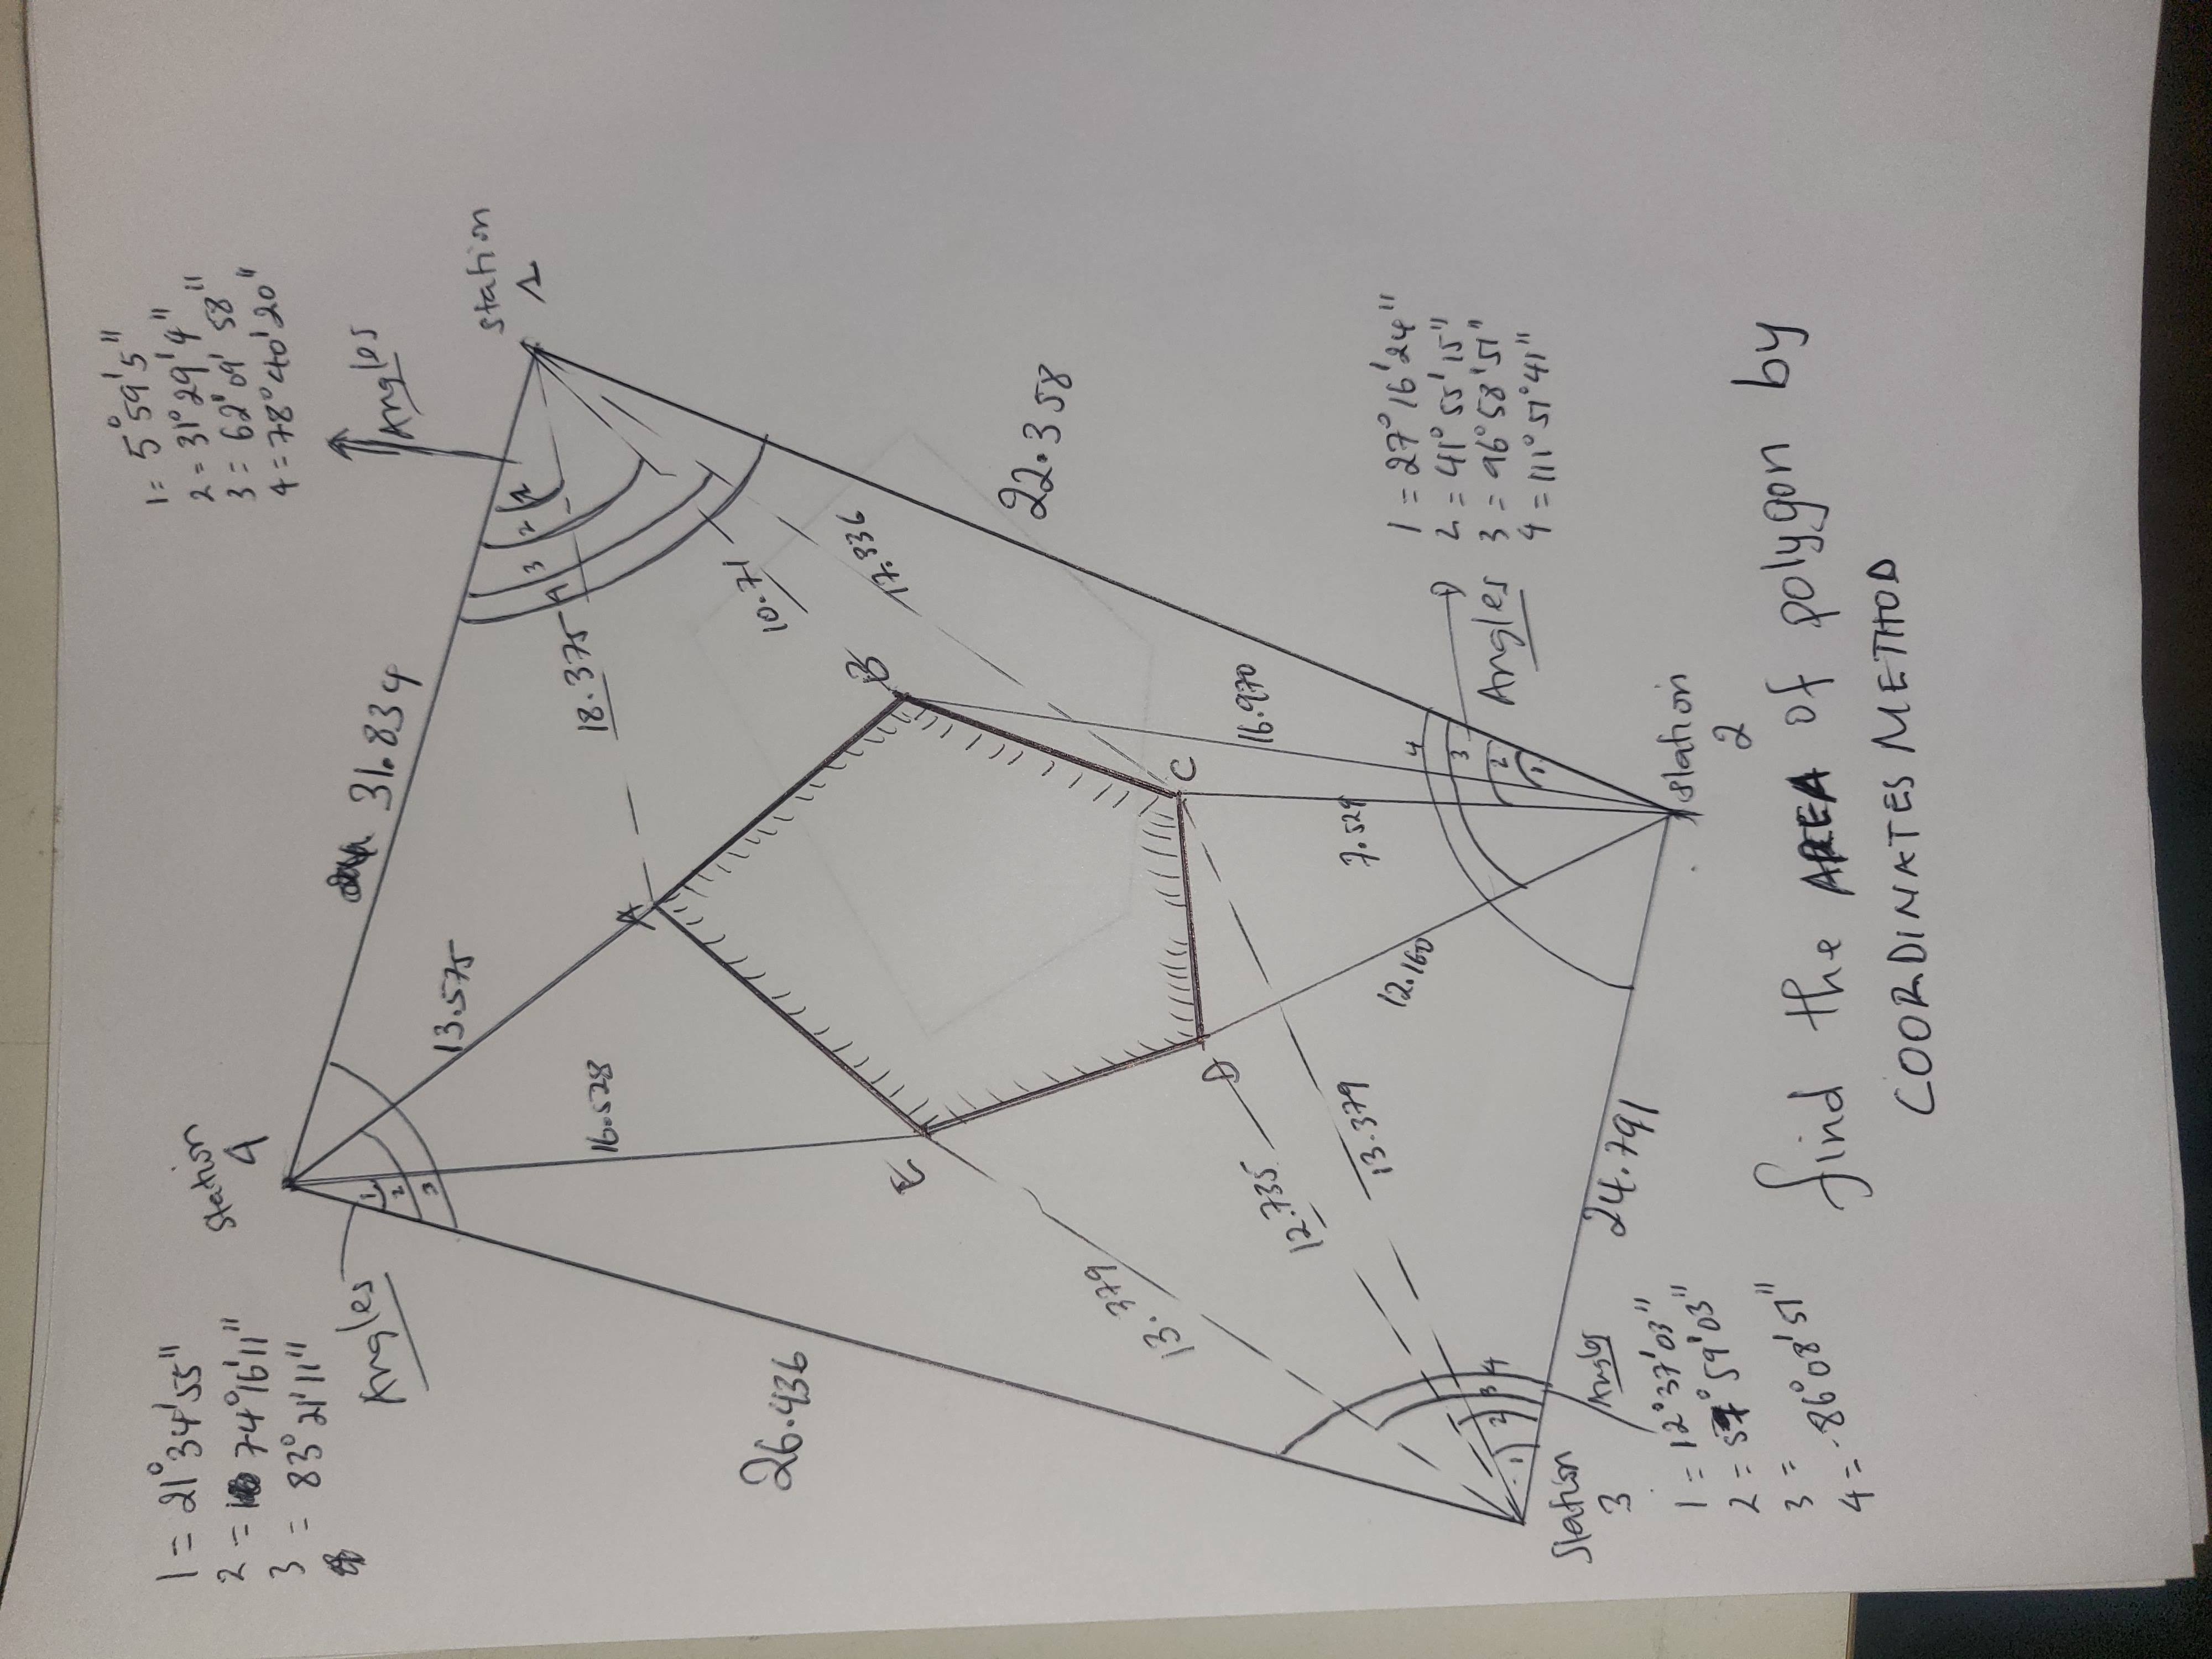 1 = 21°34'55"
2 = 74°16'11"
3 = 83°21'11"
Angles
Station
4
31.834
13.575
16.528
26.436
1
2
3
1 = 5°59'5"
2 = 31°29'4"
3 = 62°09'58"
4 = 78°40'20"
Angles
Station
1
2
3
4
18.375
10.71
17.336
22.358
A
B
C
D
E
16.970
7.529
12.160
13.379
12.735
13.379
1 = 27°16'24"
2 = 41°55'15"
3 = 96°58'51"
4 = 111°51'41"
Angles
1
2
3
4
Station
2
24.791
Station
3
1
2
3
4
Angles
1 = 12°37'03"
2 = 59'03"
3 =
4 = 86°08'51"
find the AREA of polygon by
COORDINATES METHOD